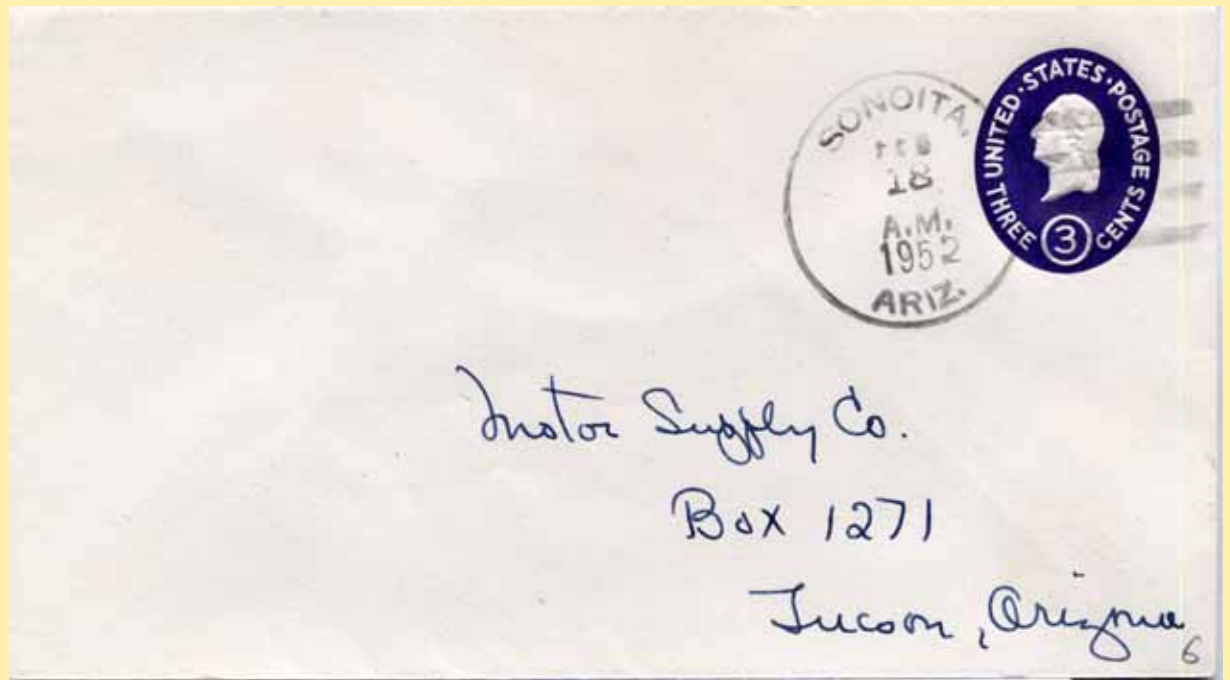 SONOITA,
FEB
18
A.M.
1952
ARIZ.
UNITED·STATES·POSTAGE
THREE 3 CENTS
Motor Supply Co.
Box 1271
Tucson, Arizona
6